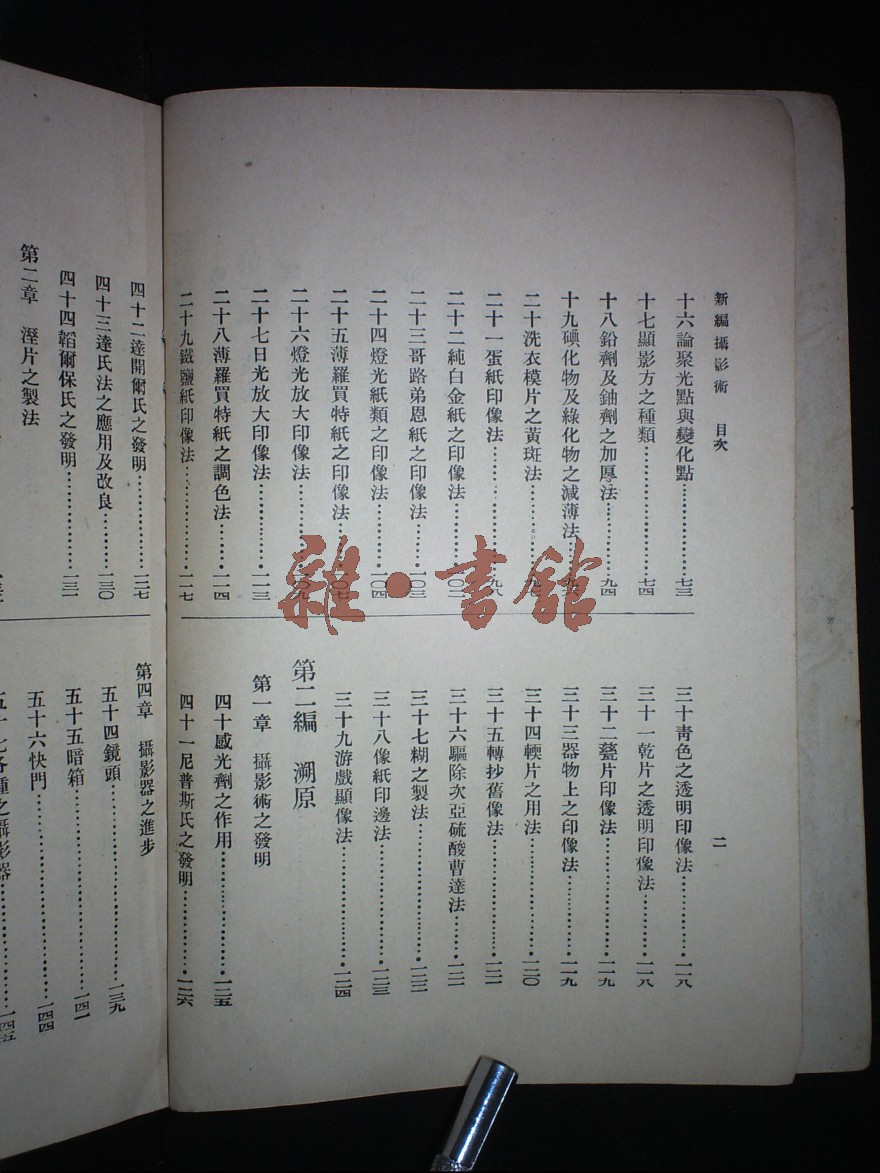 新編攝影術　目次
二
十六論聚光點與變化點……七三
十七顯影方之種類……七四
十八鉛劑及鈾劑之加厚法……九四
十九碘化物及綠化物之減薄法……九六
二十洗衣模片之黃斑法……九七
二十一蛋紙印像法……九八
二十二純白金紙之印像法……一〇二
二十三哥路弟恩紙之印像法……一〇三
二十四燈光紙類之印像法……一〇四
二十五薄羅買特紙之印像法……一〇七
二十六燈光放大印像法……一〇九
二十七日光放大印像法……一一三
二十八薄羅買特紙之調色法……一一四
二十九鐵鹽紙印像法……一一七
三十靑色之透明印像法……一一八
三十一乾片之透明印像法……一一八
三十二甆片印像法……一一九
三十三器物上之印像法……一一九
三十四輭片之用法……一二〇
三十五轉抄舊像法……一二一
三十六驅除次亞硫酸曹達法……一二一
三十七糊之製法……一二二
三十八像紙印邊法……一二三
三十九游戲顯像法……一二四
第二編　溯原
第一章　攝影術之發明
四十感光劑之作用……一二五
四十一尼普斯氏之發明……一二六
四十二達開爾氏之發明……一二七
四十三達氏法之應用及改良……一三〇
四十四韜爾保氏之發明……一三一
第二章　溼片之製法
第四章　攝影器之進步
五十四鏡頭……一三九
五十五暗箱……一四一
五十六快門……一四四
五十七各種之攝影器……一四五
雜·書館